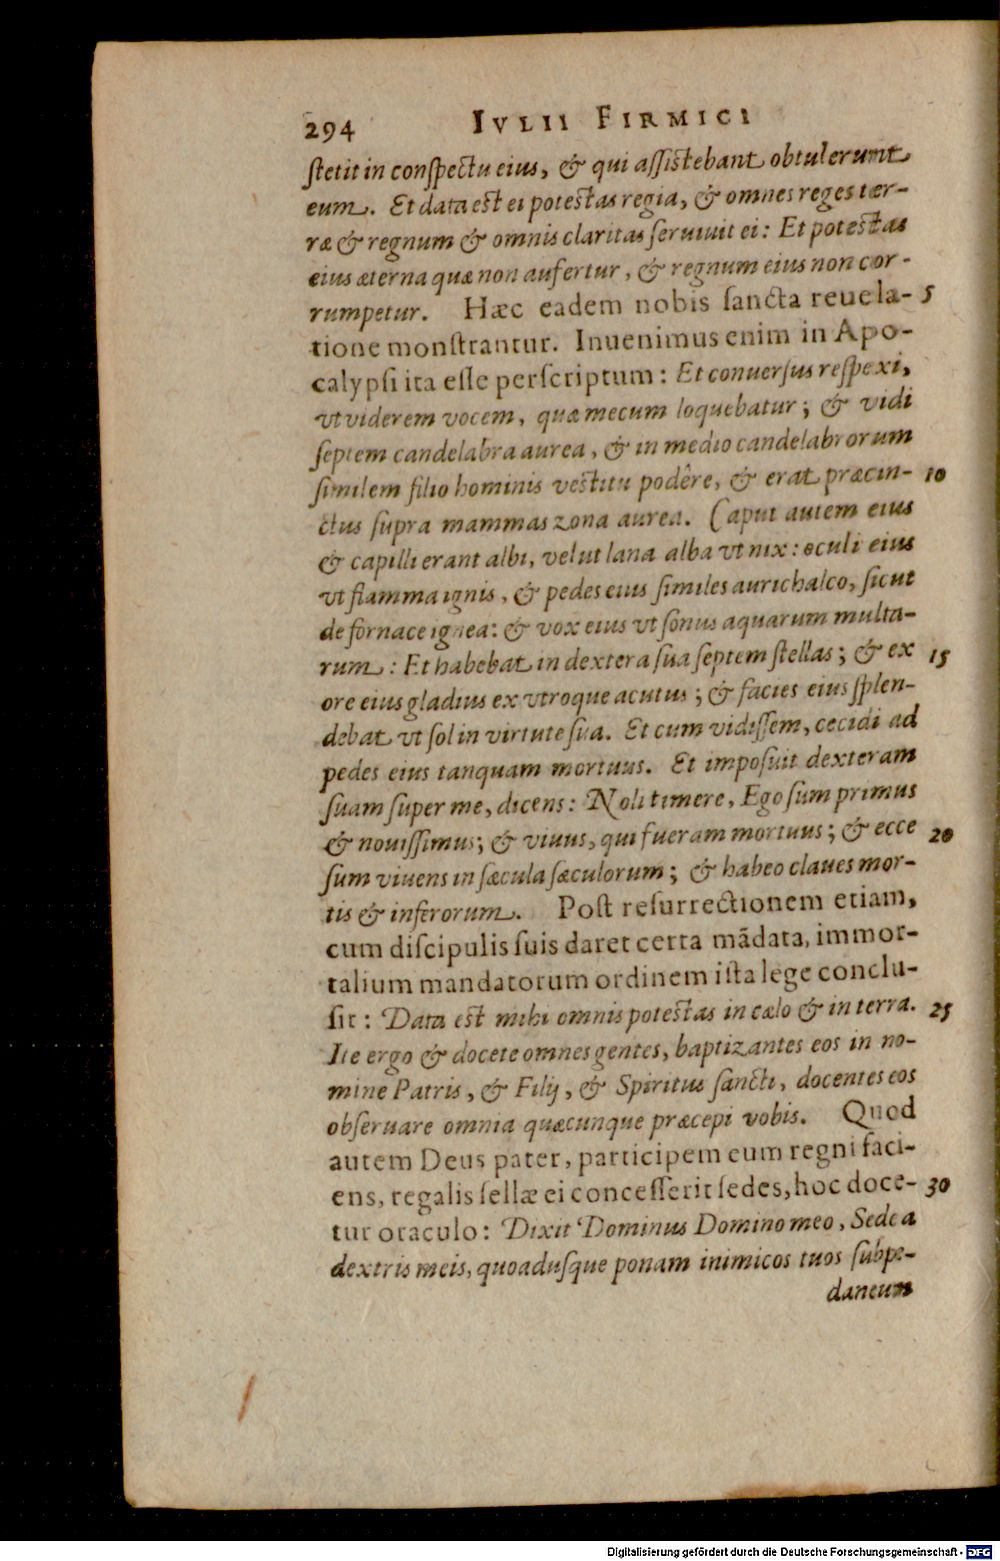 294 IVLII FIRMICI
ſtetit in conſpectu eius, & qui aſſiſtebant obtulerunt
eum. Et data eſt ei poteſtas regia, & omnes reges ter-
ræ & regnum & omnis claritas ſeruiuit ei: Et poteſtas
eius æterna quæ non aufertur, & regnum eius non cor-
rumpetur. Hæc eadem nobis ſancta reuela- 5
tione monſtrantur. Inuenimus enim in Apo-
calypſi ita eſſe perſcriptum: Et conuerſus reſpexi,
vt viderem vocem, quæ mecum loquebatur; & vidi
ſeptem candelabra aurea, & in medio candelabrorum
ſimilem filio hominis veſtitu podêre, & erat præcin- 10
ctus ſupra mammas zona aurea. Caput autem eius
& capilli erant albi, velut lana alba vt nix: oculi eius
vt flamma ignis, & pedes eius ſimiles aurichalco, ſicut
de fornace ignea: & vox eius vt ſonus aquarum multa-
rum: Et habebat in dextera ſua ſeptem ſtellas; & ex 15
ore eius gladius ex vtroque acutus; & facies eius ſplen-
debat vt ſol in virtute ſua. Et cum vidiſſem, cecidi ad
pedes eius tanquam mortuus. Et impoſuit dexteram
ſuam ſuper me, dicens: Noli timere, Ego ſum primus
& nouiſſimus; & viuus, qui fueram mortuus; & ecce 20
ſum viuens in ſæcula ſæculorum; & habeo claues mor-
tis & inferorum. Poſt reſurrectionem etiam,
cum diſcipulis ſuis daret certa mādata, immor-
talium mandatorum ordinem iſta lege conclu-
ſit: Data eſt mihi omnis poteſtas in cælo & in terra. 25
Ite ergo & docete omnes gentes, baptizantes eos in no-
mine Patris, & Filij, & Spiritus ſancti, docentes eos
obſeruare omnia quæcunque præcepi vobis. Quod
autem Deus pater, participem eum regni faci-
ens, regalis ſellæ ei conceſſerit ſedes, hoc doce- 30
tur oraculo: Dixit Dominus Domino meo, Sede a
dextris meis, quoaduſque ponam inimicos tuos ſubpe-
daneum
Digitalisierung gefördert durch die Deutsche Forschungsgemeinschaft - DFG